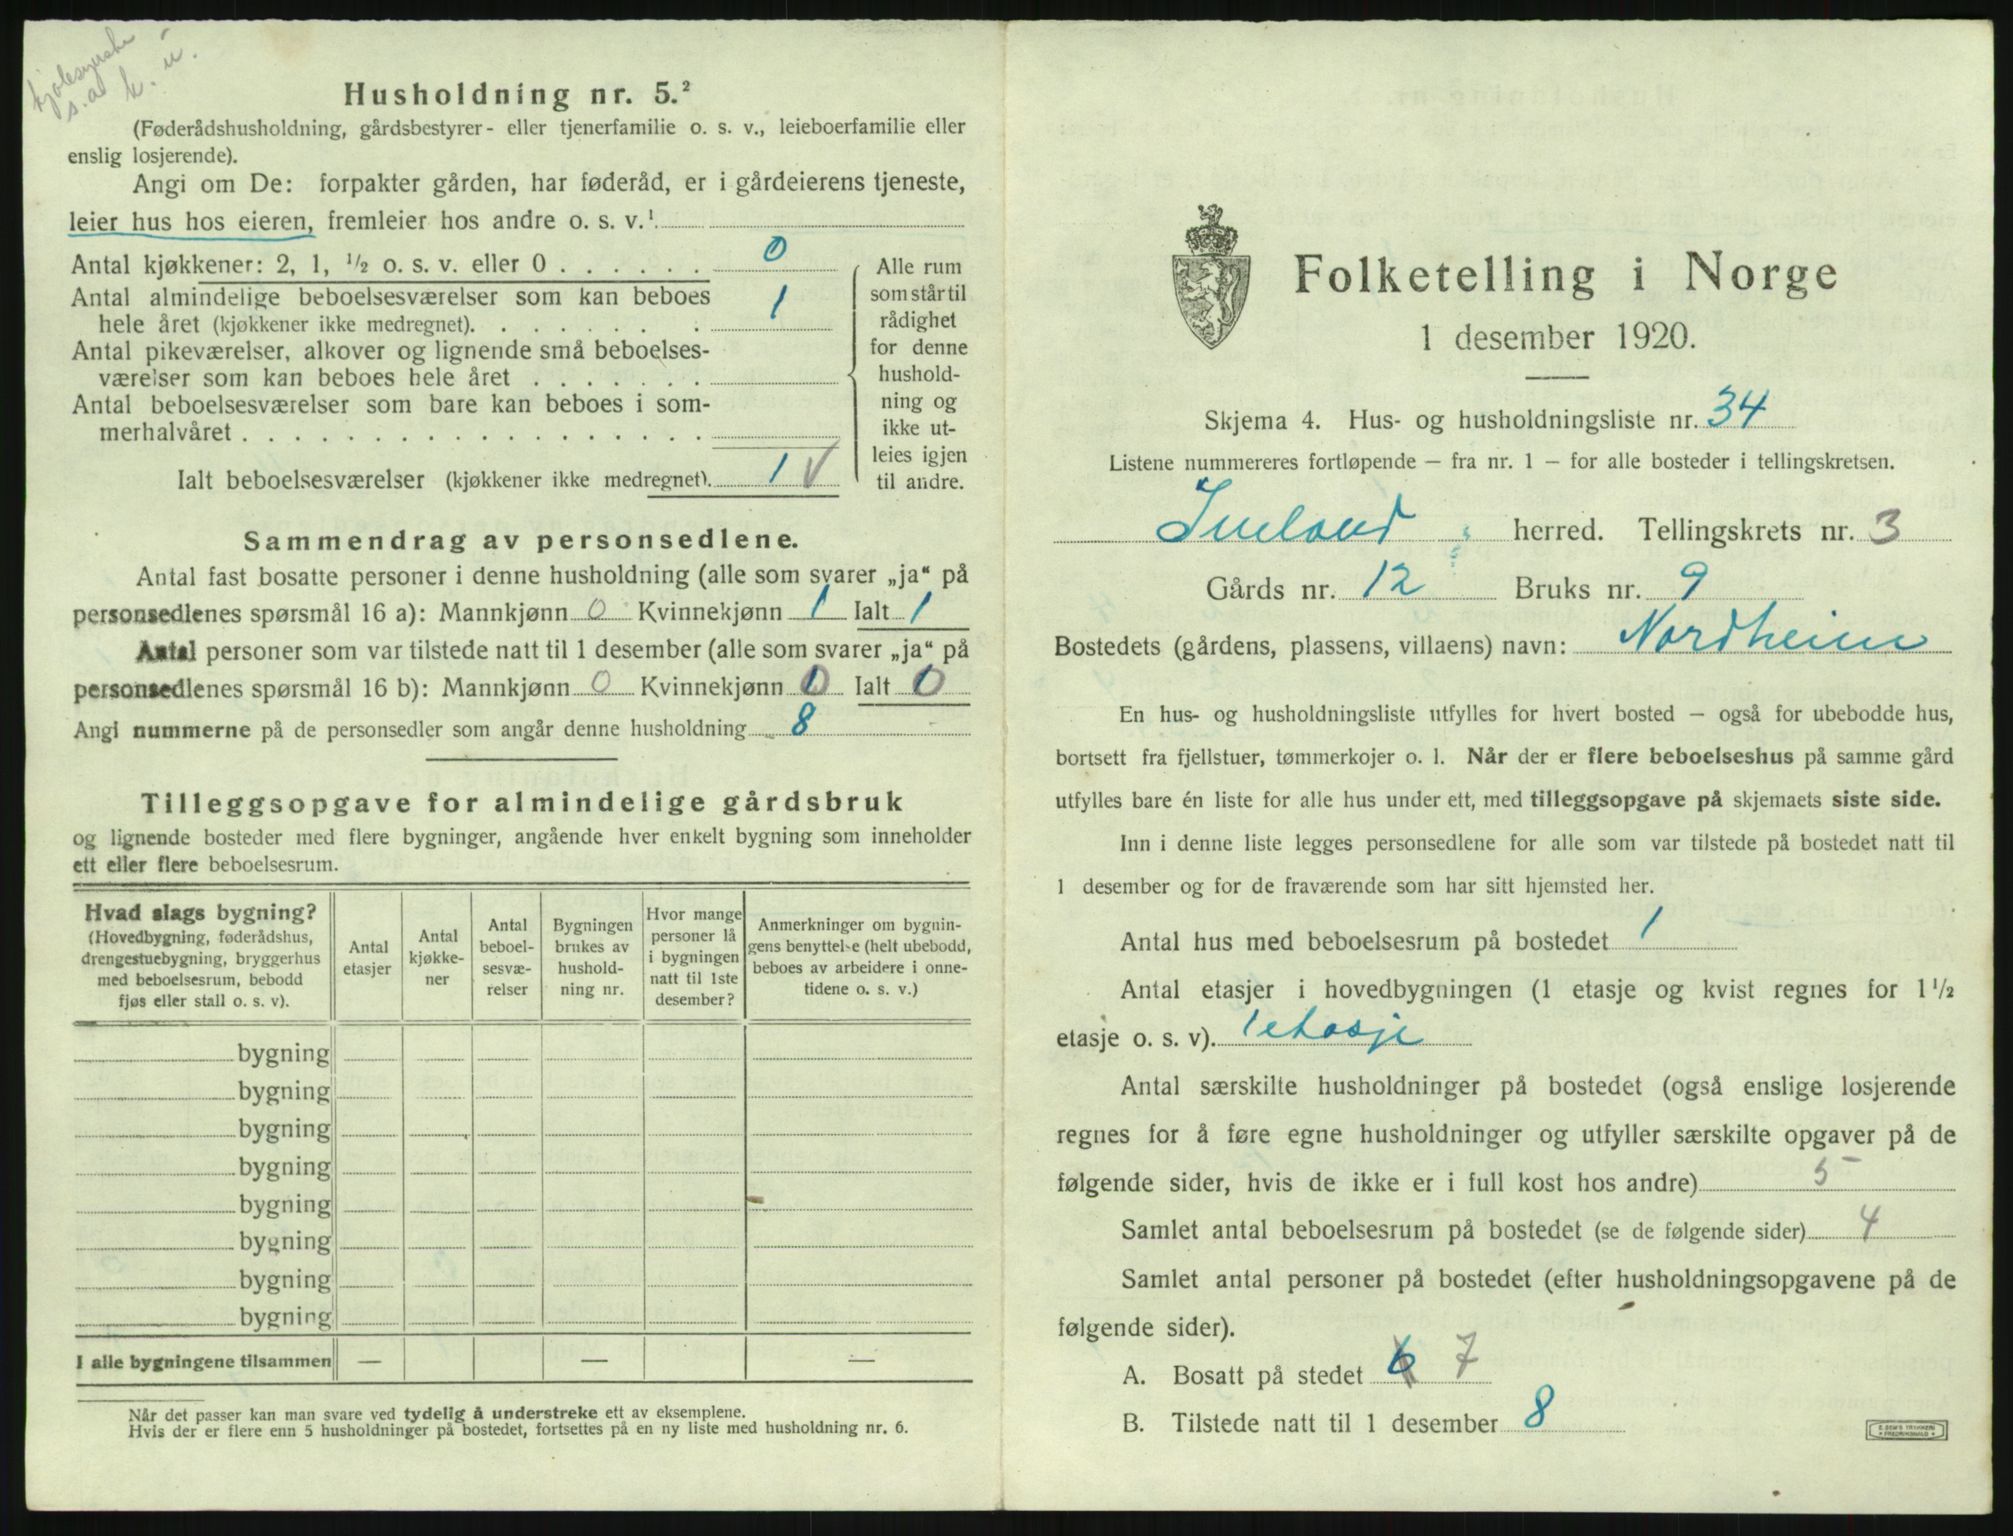 kjolesyerske
s.a k. u.
Husholdning nr. 5.²
(Føderådshusholdning, gårdsbestyrer- eller tjenerfamilie o. s. v., leieboerfamilie eller
enslig losjerende).
Angi om De: forpakter gården, har føderåd, er i gårdeierens tjeneste,
leier hus hos eieren, fremleier hos andre o. s. v.¹
Antal kjøkkener: 2, 1, ½ o. s. v. eller 0 . . . . . . 0
Antal almindelige beboelsesværelser som kan beboes
hele året (kjøkkener ikke medregnet). . . . . . . . 1
Antal pikeværelser, alkover og lignende små beboelses-
værelser som kan beboes hele året . . . . . . .
Antal beboelsesværelser som bare kan beboes i som-
merhalvåret . . . . . . . . . . . . . . . . . .
Ialt beboelsesværelser (kjøkkener ikke medregnet). 1 V
Alle rum
som står til
rådighet
for denne
hushold-
ning og
ikke ut-
leies igjen
til andre.
Sammendrag av personsedlene.
Antal fast bosatte personer i denne husholdning (alle som svarer „ja“ på
personsedlenes spørsmål 16 a): Mannkjønn 0 Kvinnekjønn 1 Ialt 1
Antal personer som var tilstede natt til 1 desember (alle som svarer „ja“ på
personsedlenes spørsmål 16 b): Mannkjønn 0 Kvinnekjønn 0 Ialt 0
Angi nummerne på de personsedler som angår denne husholdning 8
Tilleggsopgave for almindelige gårdsbruk
og lignende bosteder med flere bygninger, angående hver enkelt bygning som inneholder
ett eller flere beboelsesrum.
Hvad slags bygning?
(Hovedbygning, føderådshus,
drengestuebygning, bryggerhus
med beboelsesrum, bebodd
fjøs eller stall o. s. v).
Antal
etasjer
Antal
kjøkke-
ner
Antal
beboel-
sesvæ-
relser
Bygningen
brukes av
hushold-
ning nr.
Hvor mange
personer lå
i bygningen
natt til 1ste
desember?
Anmerkninger om bygnin-
gens benyttelse (helt ubebodd,
beboes av arbeidere i onne-
tidene o. s. v.)
bygning
bygning
bygning
bygning
bygning
bygning
bygning
bygning
I alle bygningene tilsammen — — —
Når det passer kan man svare ved tydelig å understreke ett av eksemplene.
Hvis der er flere enn 5 husholdninger på bostedet, fortsettes på en ny liste med husholdning nr. 6.
Folketelling i Norge
1 desember 1920.
Skjema 4. Hus- og husholdningsliste nr. 34
Listene nummereres fortløpende – fra nr. 1 – for alle bosteder i tellingskretsen.
Imeland herred. Tellingskrets nr. 3
Gårds nr. 12 Bruks nr. 9
Bostedets (gårdens, plassens, villaens) navn: Nordheim
En hus- og husholdningsliste utfylles for hvert bosted – også for ubebodde hus,
bortsett fra fjellstuer, tømmerkojer o. l. Når der er flere beboelseshus på samme gård
utfylles bare én liste for alle hus under ett, med tilleggsopgave på skjemaets siste side.
Inn i denne liste legges personsedlene for alle som var tilstede på bostedet natt til
1 desember og for de fraværende som har sitt hjemsted her.
Antal hus med beboelsesrum på bostedet 1
Antal etasjer i hovedbygningen (1 etasje og kvist regnes for 1½
etasje o. s. v). 1 etasje
Antal særskilte husholdninger på bostedet (også enslige losjerende
regnes for å føre egne husholdninger og utfyller særskilte opgaver på de
følgende sider, hvis de ikke er i full kost hos andre) 5
Samlet antal beboelsesrum på bostedet (se de følgende sider) 4
Samlet antal personer på bostedet (efter husholdningsopgavene på de
følgende sider).
A. Bosatt på stedet 6 7
B. Tilstede natt til 1 desember 8